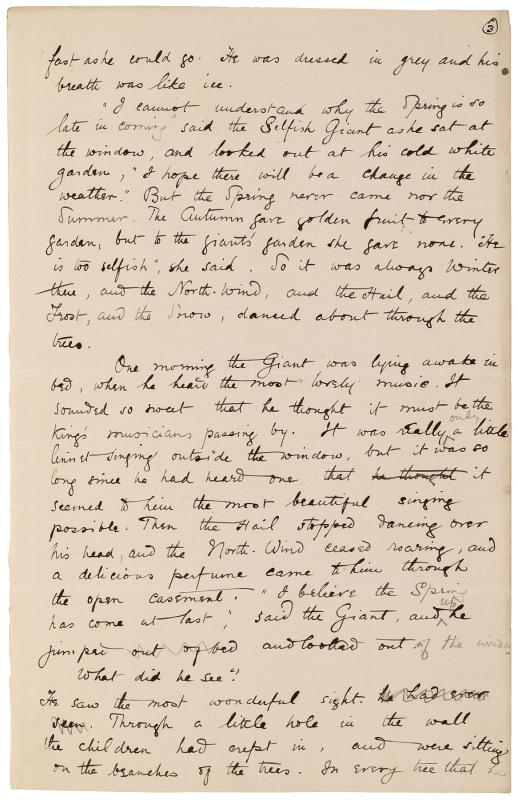 3
fast as he could go. He was dressed in grey and his
breath was like ice.
"I cannot understand why the Spring is so
late in coming" said the Selfish Giant as he sat at
the window, and looked out at his cold white
garden, "I hope there will be a change in the
weather." But the Spring never came nor the
Summer. The Autumn gave golden fruit to every
garden, but to the giant's garden she gave none. "He
is too selfish", she said. So it was always Winter
there, and the North-Wind, and the Hail, and the
Frost, and the Snow, danced about through the
trees.
One morning the Giant was lying awake in
bed, when he heard the most lovely music. It
sounded so sweet that he thought it must be the
King's musicians passing by. It was really only a little
linnet singing outside the window, but it was so
long since he had heard one that he thought it
seemed to him the most beautiful singing
possible. Then the Hail stopped dancing over
his head, and the North-Wind ceased roaring, and
a delicious perfume came to him through
the open casement. "I believe the Spring
has come at last", said the Giant, and he up
jumped out of bed and looked out of the window
What did he see"?
He saw the most wonderful sight. he had ever
seen. Through a little hole in the wall
the children had crept in, and were sitting
on the branches of the trees. In every tree that he